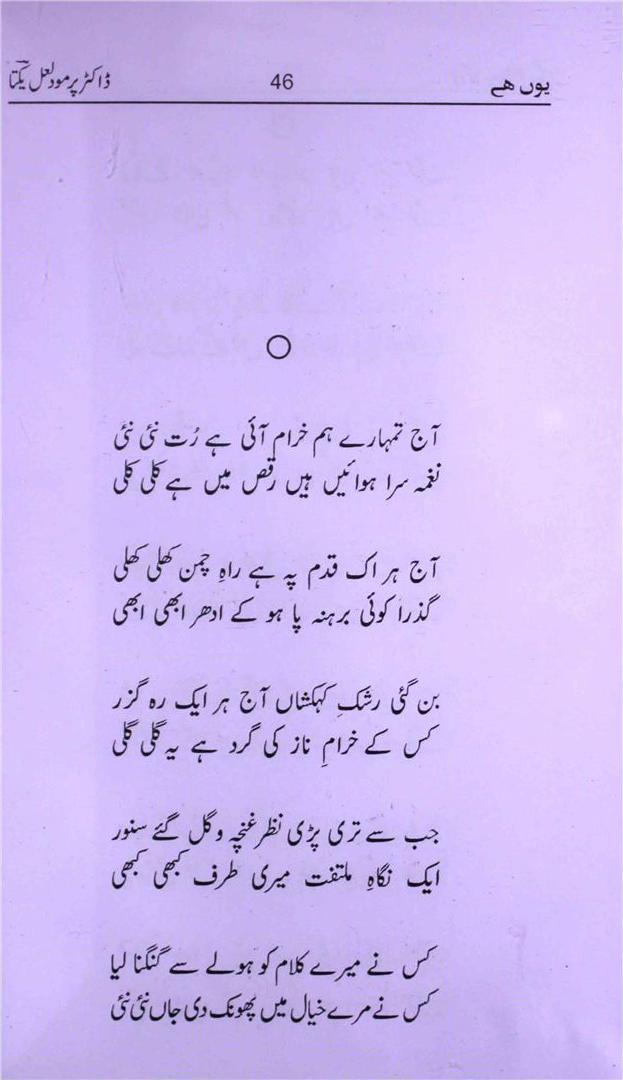 یوں ھے 46 ڈاکٹر پرمود لعل یکتا
آج تمہارے ہم خرام آئی ہے رُت نئی نئی
نغمہ سرا ہوائیں ہیں رقص میں ہے کلی کلی
آج ہر اک قدم پہ ہے راہِ چمن کھلی کھلی
گذرا کوئی برہنہ پا ہو کے ادھر ابھی ابھی
بن گئی رشکِ کہکشاں آج ہر ایک رہ گزر
کس کے خرامِ ناز کی گرد ہے یہ گلی گلی
جب سے تری پڑی نظر غنچہ و گل گئے سنور
ایک نگاہِ ملتفت میری طرف کبھی کبھی
کس نے میرے کلام کو ہولے سے گنگنا لیا
کس نے مرے خیال میں پھونک دی جاں نئی نئی